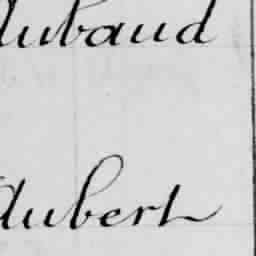 Aubaud
Aubert